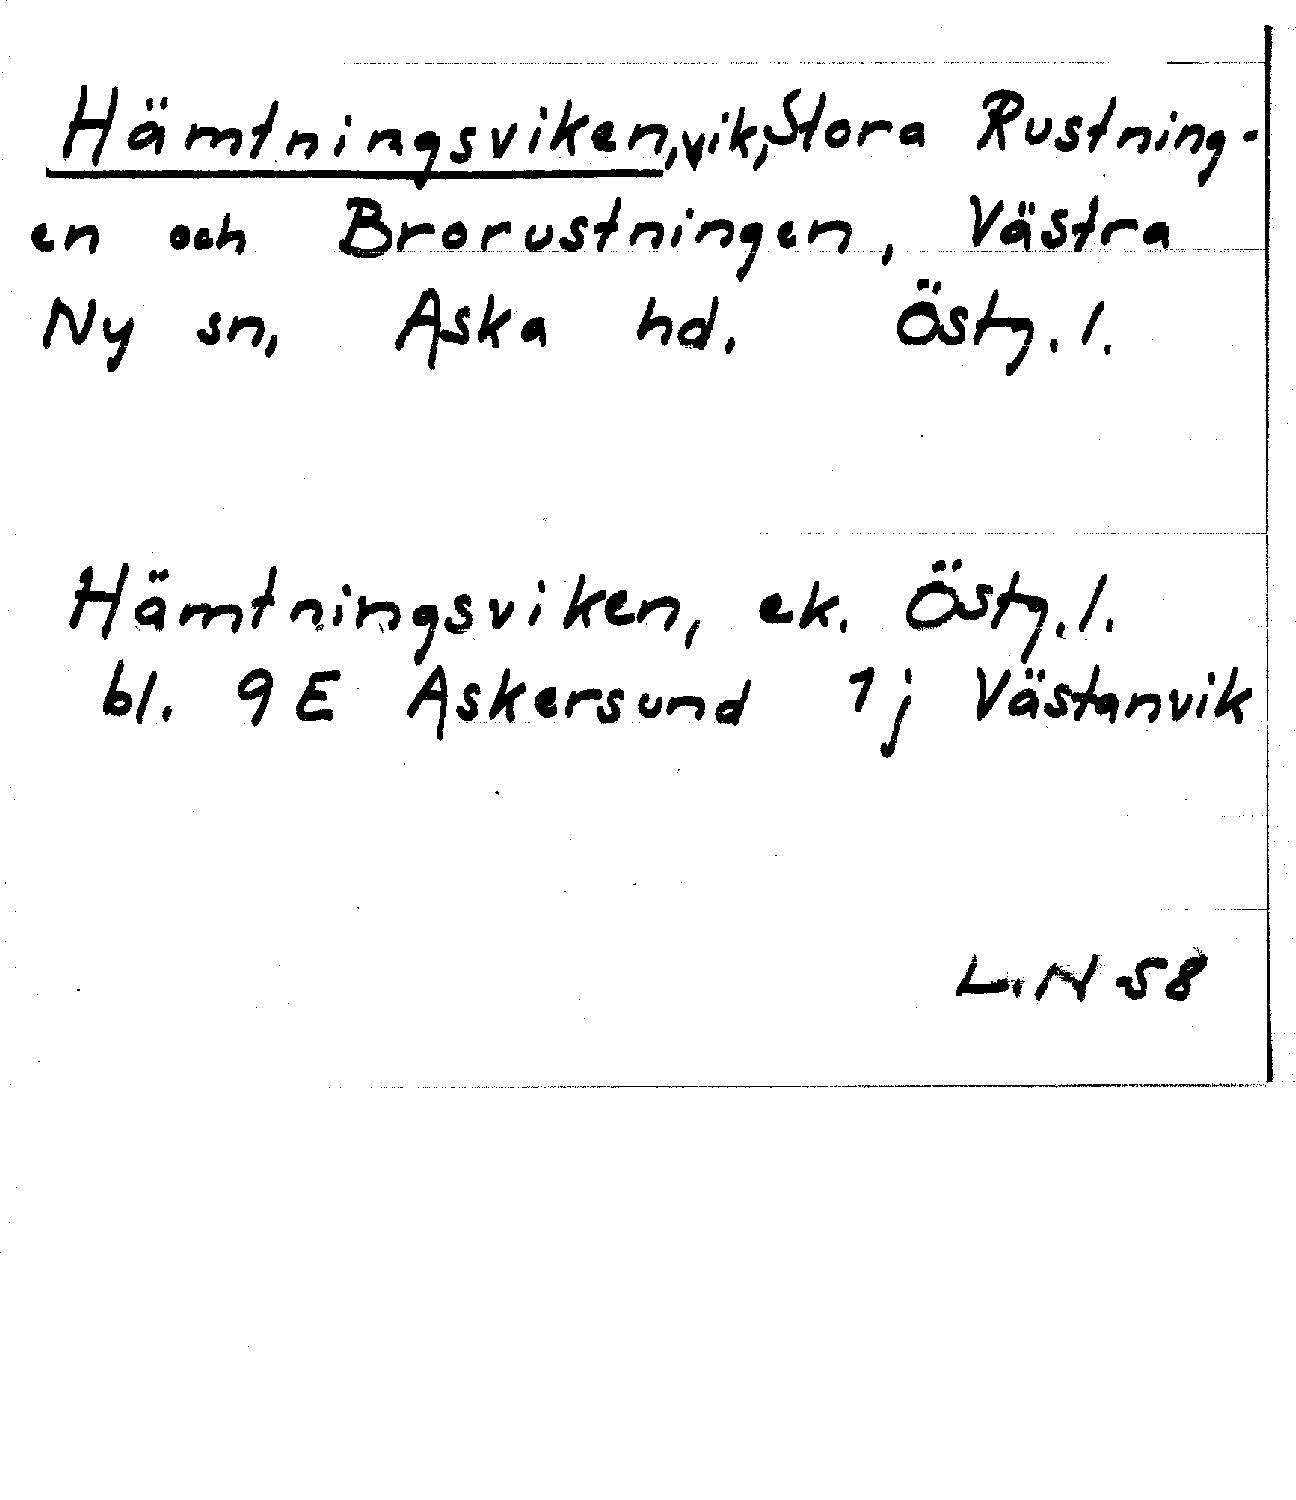 Hämtningsviken, vik, Stora Rustning-
en och Brorustningen, Västra
Ny sn, Aska hd. Östg. l.
Hämtningsviken, ek. Östg. l.
bl. 9E Askersund 1j Västanvik
L.N 58